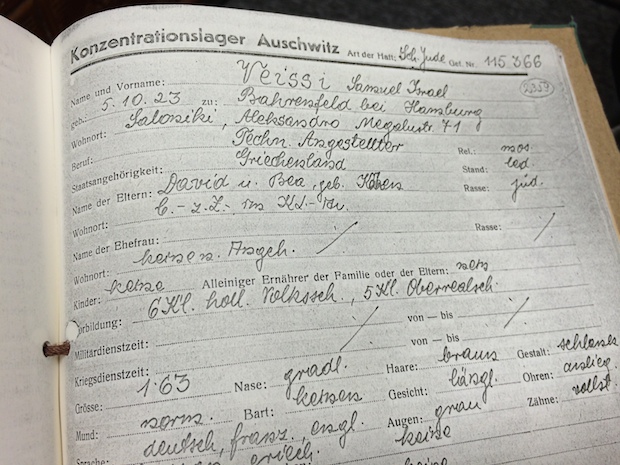 Konzentrationslager Auschwitz Art der Haft: Sch. Jude Gef. Nr. 115366
Name und Vorname: Veissi Samuel Israel
geb.: 5.10.23 zu: Bahrenfeld bei Hamburg
Wohnort: Saloniki, Aleksandro Megalustr. 71
Beruf: Techn. Angestellter Rel.: mos.
Staatsangehörigkeit: Griechenland Stand: led.
Name der Eltern: David u. Bea, geb. Rasse: jüd.
Wohnort: b. - z. Z. - im KL. -
Name der Ehefrau: / Rasse: /
Wohnort: keinen. Angeh.
Kinder: keine Alleiniger Ernährer der Familie oder der Eltern: nein
Vorbildung: 6 Kl. holl. Volkssch., 5 Kl. Oberrealsch.
Militärdienstzeit: / von – bis /
Kriegsdienstzeit: von – bis
Grösse: 1.63 Nase: gradl. Haare: braun Gestalt:
Mund: norm. Bart: keinen Gesicht: längl. Ohren: anlieg.
Sprache: deutsch, franz., engl. Augen: grau Zähne: vollst.
griech. keine